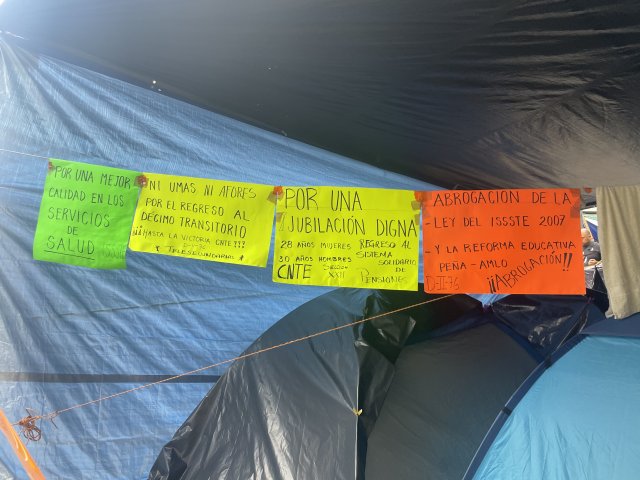 POR UNA MEJOR
CALIDAD EN LOS
SERVICIOS
DE
SALUD
NI UMAS NI AFORES
POR EL REGRESO AL
DÉCIMO TRANSITORIO
¡¡¡HASTA LA VICTORIA CNTE!!!
TELESECUNDARIAS
POR UNA
JUBILACIÓN DIGNA
28 AÑOS MUJERES
30 AÑOS HOMBRES
CNTE SECCIÓN XXII
REGRESO AL
SISTEMA
SOLIDARIO
DE
PENSIONES
ABROGACION DE LA
- LEY DEL ISSSTE 2007
- Y LA REFORMA EDUCATIVA
PEÑA - AMLO
D-II-76 ¡¡ABROGACIÓN!!